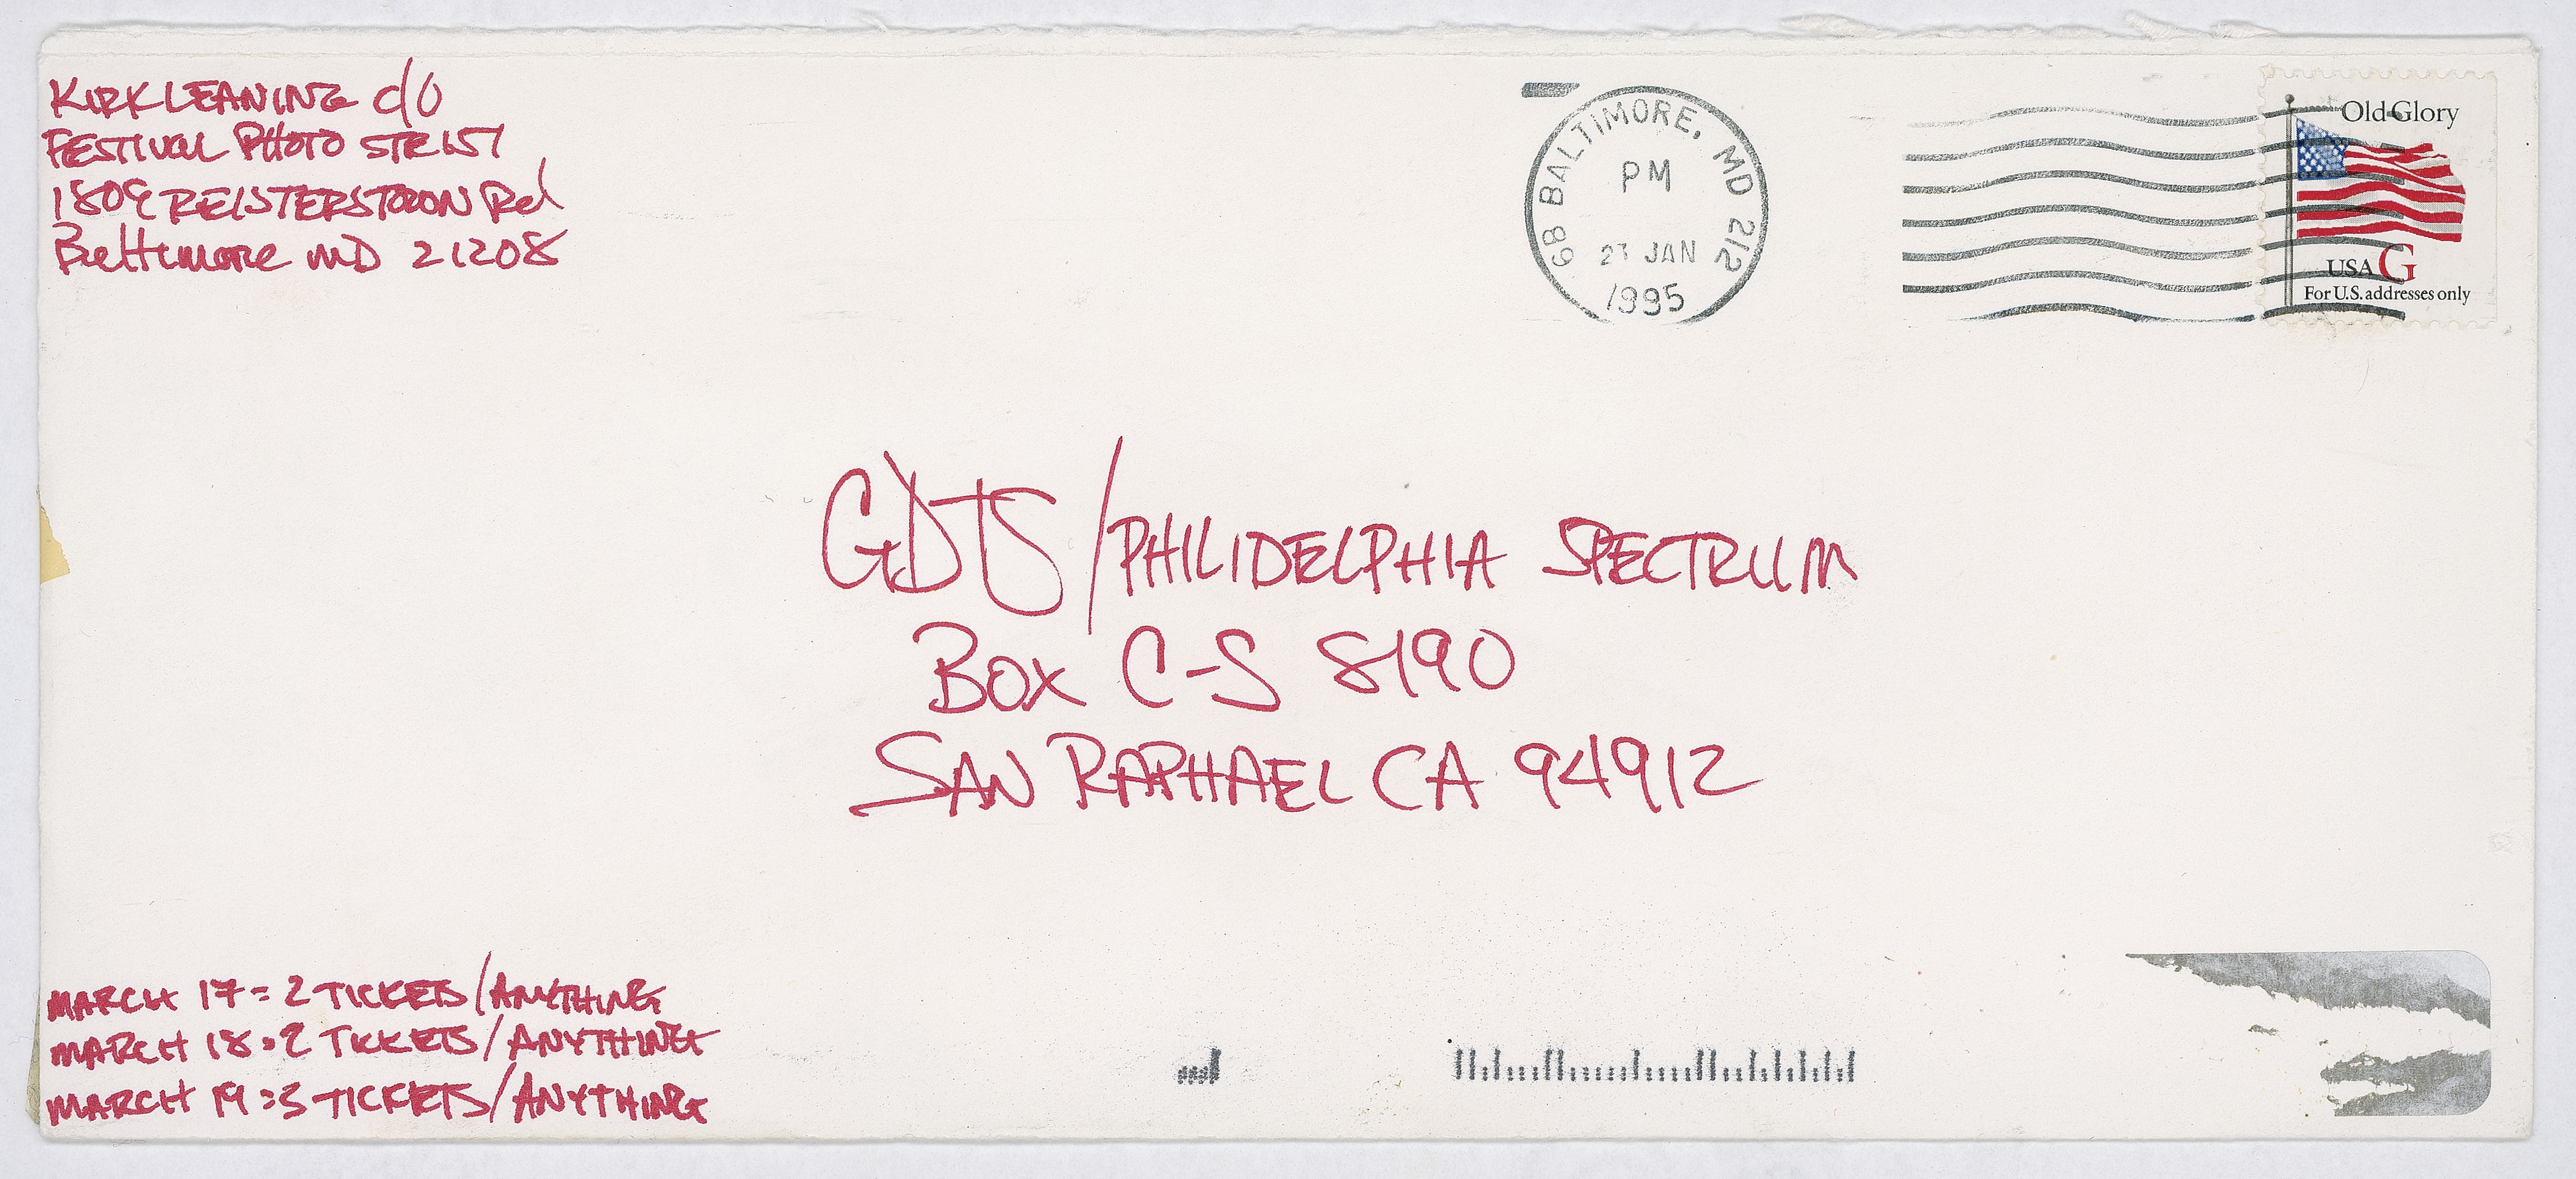 KIRK LEANING c/o
FESTIVAL PHOTO STR 157
1809 REISTERSTOWN Rd
Baltimore MD 21208
68 BALTIMORE, MD 212
PM
JAN
1995
Old Glory
USA G
For U.S. addresses only
GDTS/PHILIDELPHIA SPECTRUM
BOX C-S 8190
SAN RAPHAEL CA 94912
MARCH 17 = 2 TICKETS/ANYTHING
MARCH 18 = 2 TICKETS/ANYTHING
MARCH 19 = 3 TICKETS/ANYTHING